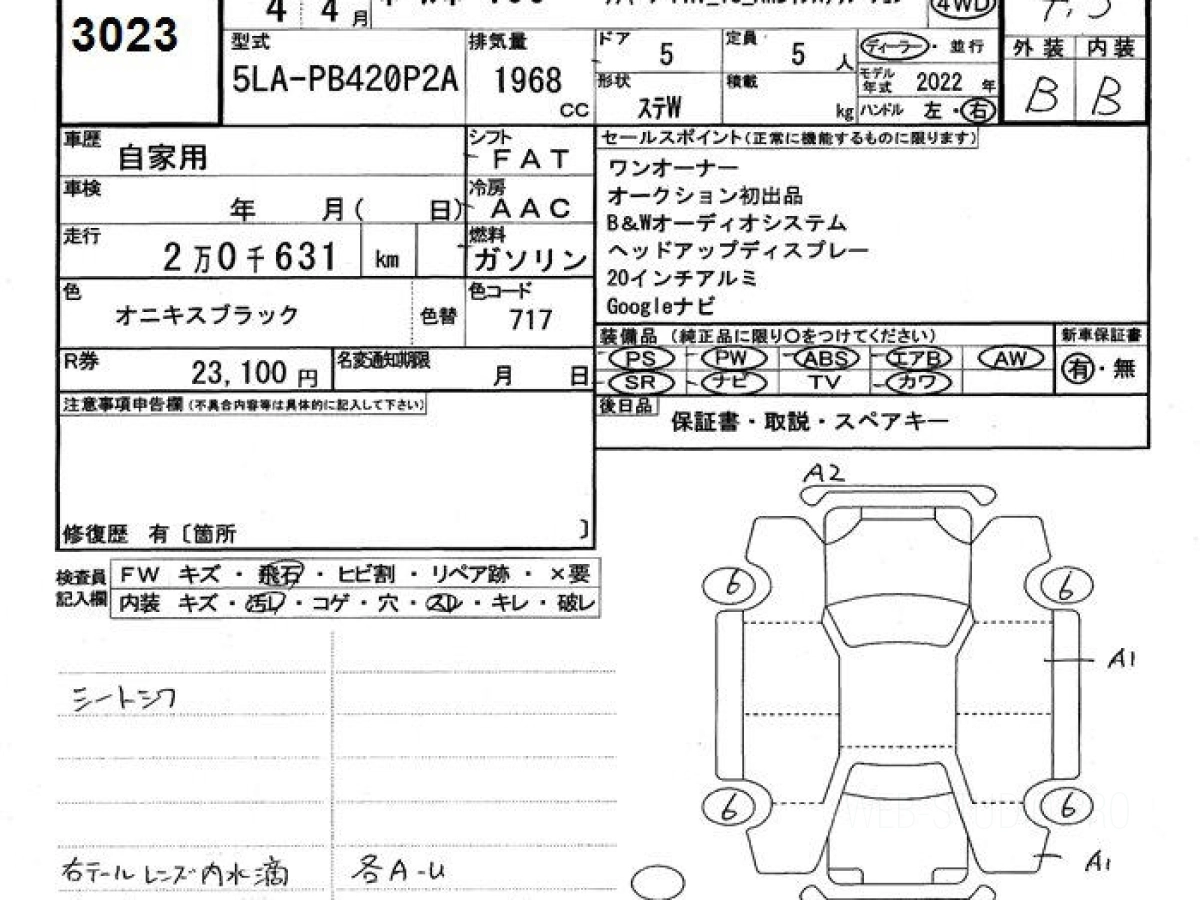 3023
4 4 月
4WD
型式
5LA-PB420P2A
排気量
1968
CC
ドア
5
定員
5
人
ディーラー・並行
形状
ステW
積載
kg
モデル年式 2022 年
ハンドル 左・右
外装 内装
B B
車歴
自家用
シフト
FAT
車検
年 月( 日)
冷房
AAC
走行
2万0千631 km
燃料
ガソリン
色
オニキスブラック
色替
色コード
717
R券
23,100 円
名変通知期限
月 日
セールスポイント(正常に機能するものに限ります)
ワンオーナー
オークション初出品
B&Wオーディオシステム
ヘッドアップディスプレー
20インチアルミ
Googleナビ
装備品 (純正品に限り○をつけてください)
PS PW ABS エアB AW
SR ナビ TV カワ
新車保証書
有・無
後日品
保証書・取説・スペアキー
注意事項申告欄(不具合内容等は具体的に記入して下さい)
修復歴 有〔箇所 〕
検査員記入欄
FW キズ・飛石・ヒビ割・リペア跡・×要
内装 キズ・汚レ・コゲ・穴・スレ・キレ・破レ
シートシワ
右テールレンズ内水滴
各A-U
A2
6 6
A1
6 6
A1